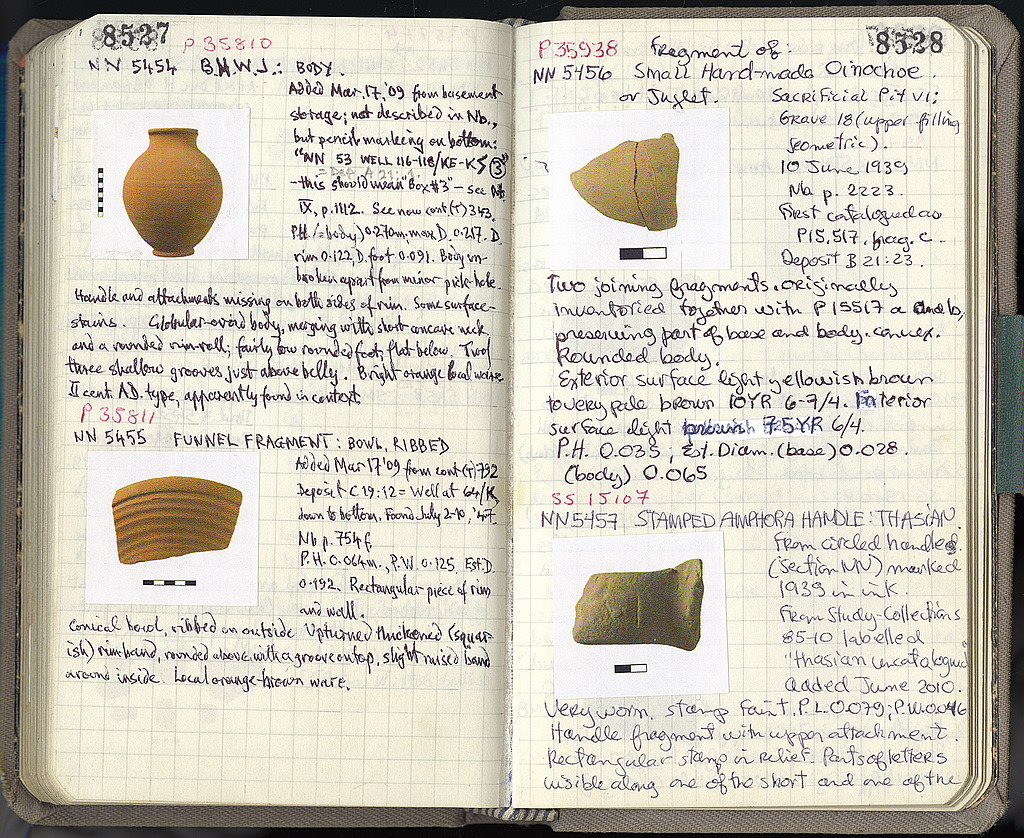 8537
P 35810
NN 5454 B.H.W.J.: BODY.
Added Mar. 17, '09 from basement
storage; not described in Nb.,
but pencil marking on bottom:
"NN 53 WELL 116-118/KE-KS ③"
= Dep. A 21:1.
-this should mean "Box #3" - see Nb.
IX, p. 1112. See now cont(T) 343.
P.H. (= body) 0.270m; max D. 0.217. D.
rim 0.122, D. foot 0.091. Body un-
broken apart from minor pick-hole.
Handle and attachments missing on both sides of rim. Some surface-
stains. Globular-ovoid body, merging with short concave neck
and a rounded rim-roll; fairly low rounded foot, flat below. Two/
three shallow grooves just above belly. Bright orange local ware.
II cent. A.D. type, apparently found in context.
P 35811
NN 5455 FUNNEL FRAGMENT: BOWL, RIBBED
Added Mar 17 '09 from cont(T) 792
Deposit C 19:12 = Well at 64/K,
down to bottom. Found July 2-10, '47.
Nb p. 754 f.
P.H. 0.064m., P.W. 0.125, Est. D.
0.192. Rectangular piece of rim
and wall.
Conical bowl, ribbed on outside. Upturned thickened (squar-
ish) rim band, rounded above with a groove on top, slight raised band
around inside. Local orange-brown ware.
8528
P 35938 Fragment of:
NN 5456 Small Hand-made Oinochoe
or Juglet.
Sacrificial Pit VI;
Grave 18 (upper filling
geometric).
10 June 1939
Nb p. 2223.
First catalogued as
P 15,517, frag. c.
Deposit B 21:23.
Two joining fragments, originally
inventoried together with P 15517 a and b,
preserving part of base and body. convex.
Rounded body.
Exterior surface light yellowish brown
to very pale brown 10YR 6-7/4. Interior
surface light brown 7.5YR 6/4.
P.H. 0.035; Est. Diam. (base) 0.028.
(body) 0.065
SS 15107
NN 5457 STAMPED AMPHORA HANDLE: THASIAN.
From circled handles.
(section NN) marked
1939 in ink.
From Study-Collections
85-10 labelled
"thasian uncatalogued"
Added June 2010.
Very worn. stamp faint. P.L. 0.079; P.W. 0.046
Handle fragment with upper attachment.
Rectangular stamp in relief. Parts of letters
visible along one of the short and one of the